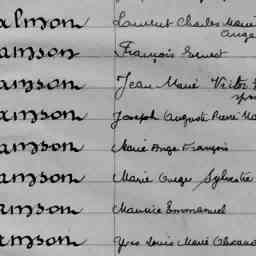 almson Laurent Charles Marie
Ange
amson François Ernest
amson Jean Marie Victor
amson Joseph Auguste Pierre Ma
amson Marie Ange François
amson Marie Ange Sylvestre
amson Maurice Emmanuel
amson Yves Louis Marie Alexand